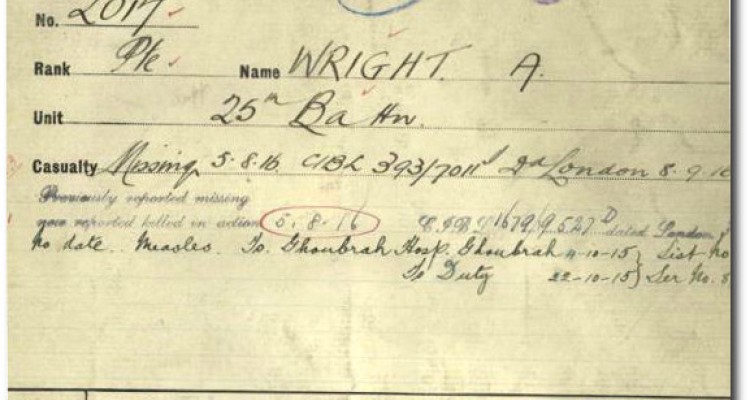 No. 2017
Rank Pte Name WRIGHT. A.
Unit 25th Battn.
Casualty Missing 5.8.16. CIBL 393/7011 Dd London 8.9.16
Previously reported missing
now reported killed in action 5.8.16 C.I.B.L 1679/9527 D dated London
No date. Measles. To. Ghoubrah Hosp. Ghoubrah 4-10-15} List No
To Duty 22-10-15} Ser No. 8